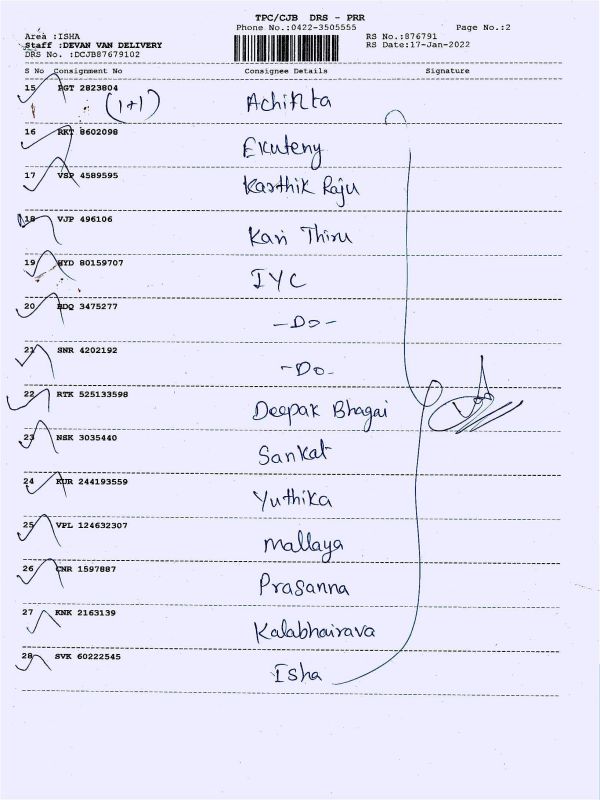 TPC/CJB DRS - PRR
Phone No.:0422-3505555 Page No.:2
Area :ISHA RS No.:876791
Staff :DEVAN VAN DELIVERY RS Date:17-Jan-2022
DRS No. :DCJB87679102
S No Consignment No Consignee Details Signature
15 PGT 2823804 (1+1) Achinta
16 RKT 8602098 Ekuteny
17 VSP 4589595 Karthik Raju
18 VJP 496106 Kavi Thiru
19 HYD 80159707 IYC
20 BDQ 3475277 -Do-
21 SNR 4202192 -Do-
22 RTK 525133598 Deepak Bhagai
23 NSK 3035440 Sankat
24 KUR 244193559 Yuthika
25 VPL 124632307 Mallaya
26 CNR 1597887 Prasanna
27 KNK 2163139 Kalabhairava
28 SVK 60222545 Isha